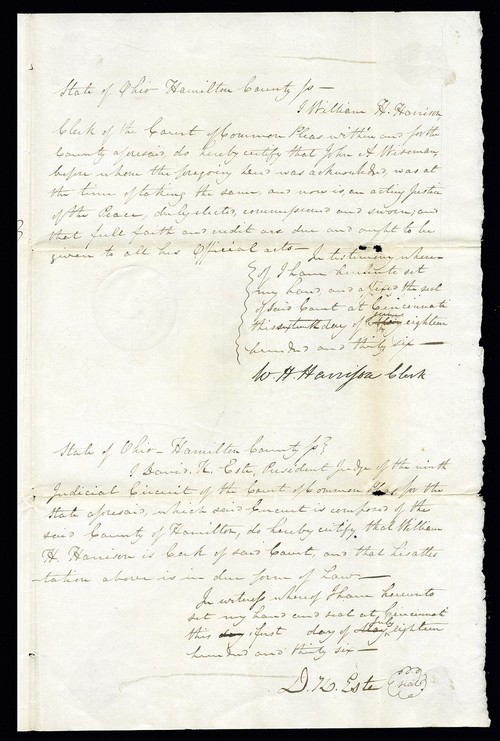 State of Ohio Hamilton County ss —
I William H. Harrison
Clerk of the Court of Common Pleas within and for the
County aforesaid, do hereby certify that John A Wiseman,
before whom the foregoing Deed was acknowledged, was at
the time of taking the same, and now is, an acting Justice
of the Peace, duly elected, commissioned and sworn; and
that full faith and credit are due and ought to be
given to all his Official acts — In testimony where-
of I have hereunto set
my hand, and affixed the seal
of said Court at Cincinnati
this sixteenth day of eighteen
hundred and thirty six —
W. H. Harrison Clerk
State of Ohio — Hamilton County ss
I David K. Este, President Judge of the ninth
Judicial Circuit of the Court of Common Pleas for the
State aforesaid, which said Circuit is composed of the
said County of Hamilton, do hereby certify, that William
H. Harrison is Clerk of said Court, and that his attes
-tation above is in due form of Law —
In witness whereof I have hereunto
set my hand and seal at Cincinnati
this first day of July eighteen
hundred and thirty six —
D. K. Este seal